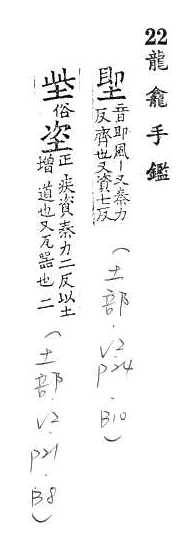 22 龍龕手鑑
聖 音即風-又秦力
反齊也又資士反
(土部·V2
P24
·B10)
垐 俗 垐 正 疾資秦力二反以土
增道也又瓦器也二
(土部·V2
P21
·B8)